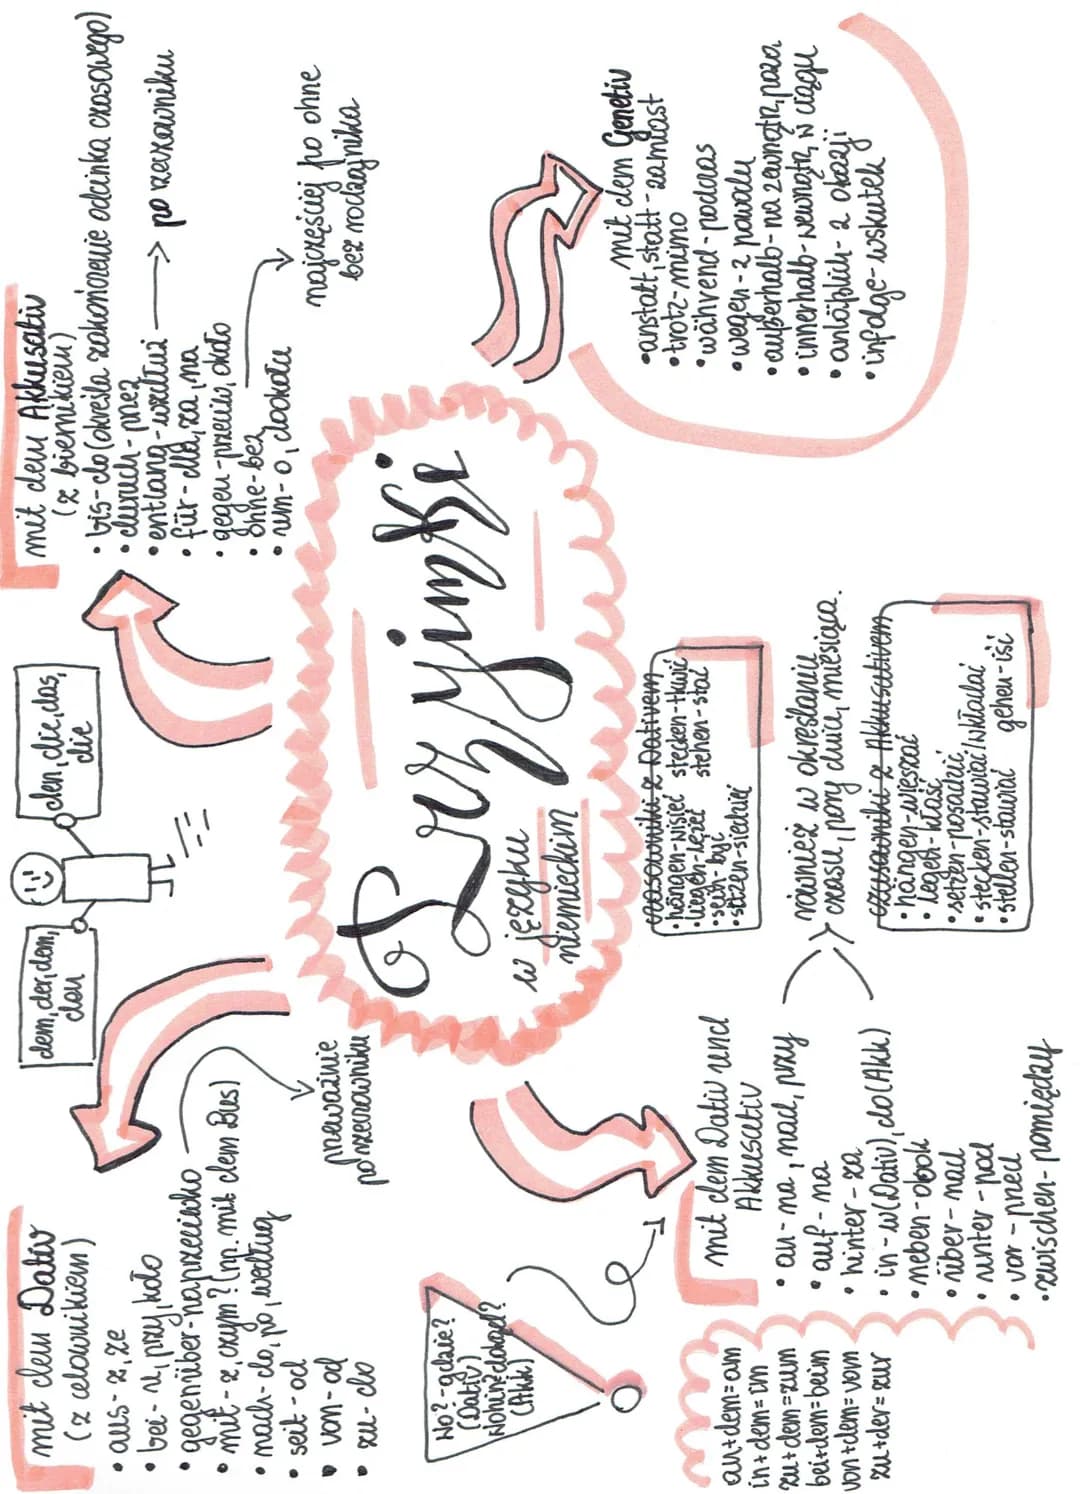 Przyimki
w języku
niemieckim
mit dem Dativ
(z celownikiem)
• aus - z, ze
• bei - u, przy, koło
• gegenüber - naprzeciwko
• mit - z czym? (np. mit dem Bus)
• nach - do, po, według
• seit - od
• von - od
• zu - do
przeważnie
po rzeczowniku
dem, der, dem,
den
den, die, das,
die
mit dem Akkusativ
(z biernikiem)
• bis - do (określa zakończenie odcinka czasowego)
• durch - przez
• entlang - wzdłuż → po rzeczowniku
• für - dla, za, na
• gegen - przeciw, około
• ohne - bez
• um - o, dookoła
najczęściej po ohne
bez rodzajnika
Wo? - gdzie?
(Dativ)
Wohin? - dokąd?
(Akk)
an+dem=am
in+dem=im
zu+dem=zum
bei+dem=beim
von+dem=vom
zu+der=zur
mit dem Dativ und
Akkusativ
• an - na, nad, przy
• auf - na
• hinter - za
• in - w (Dativ), do (Akk)
• neben - obok
• über - nad
• unter - pod
• vor - przed
• zwischen - pomiędzy
również w określaniu
czasu, pory dnia, miesiąca.
czasowniki z Dativem
• hängen - wisieć stecken - tkwić
• liegen - leżeć stehen - stać
• sein - być
• sitzen - siedzieć
czasowniki z Akkusativem
• hängen - wieszać
• legen - kłaść
• setzen - posadzić
• stecken - stawiać/wkładać
• stellen - stawiać gehen - iść
mit dem Genetiv
• anstatt, statt - zamiast
• trotz - mimo
• während - podczas
• wegen - z powodu
• außerhalb - na zewnątrz, poza
• innerhalb - wewnątrz, w ciągu
• anläßlich - z okazji
• infolge - wskutek